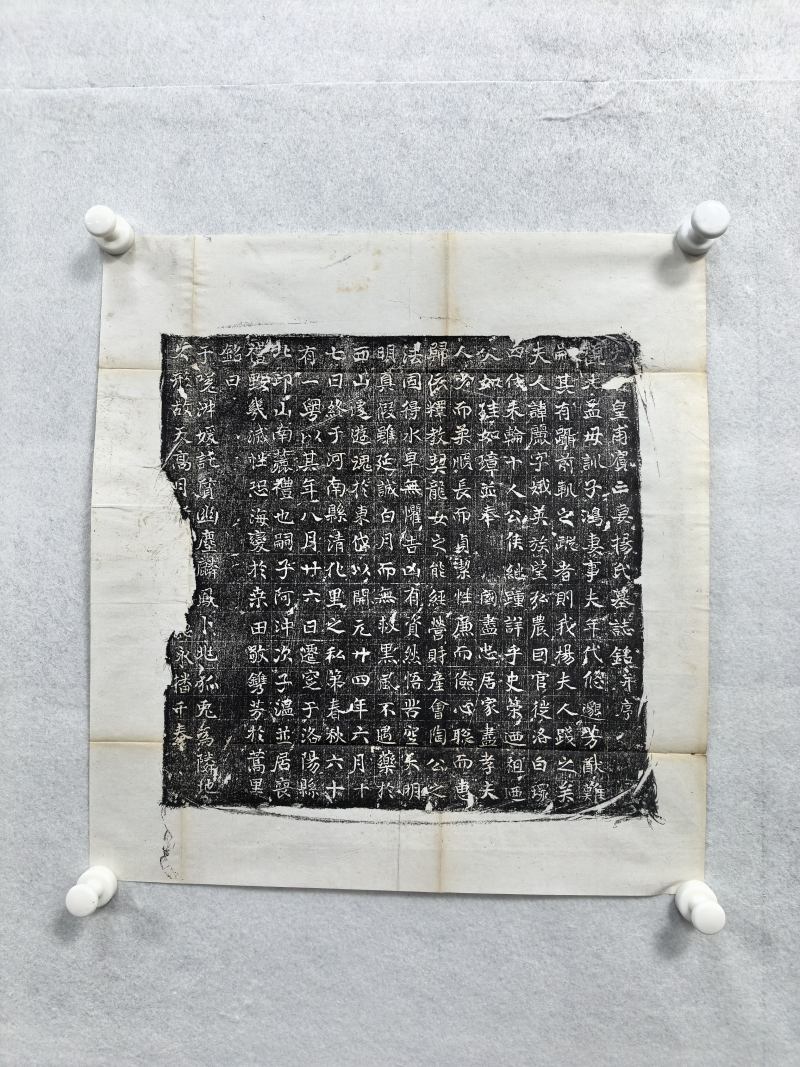 皇甫賓亡妻揚氏墓誌銘并序
夫孟母訓子鴻妻事夫年代悠邈芳猷難
嗣其有躡前軌之跡者則我楊夫人踐之矣
夫人諱字娥英族望弘農因官徙洛白環
四代朱輪十人公侯繼踵詳乎史策迺祖迺
父如珪如璋並奉 國盡忠居家盡孝夫
人少而柔順長而貞潔性廉而儉心聰而惠
歸依釋教契龍女之能經營財產會陶公之
法固得水旱無懼吉凶有資然悟苦空久明
明真假雖延誠白月而無救黑風不遇藥於
西山遂遊魂於東岱以開元廿四年六月十
七日終于河南縣清化里之私第春秋六十
有一粵以其年八月廿六日遷窆于洛陽縣
北邙山南麓禮也嗣子阿沖次子溫並居喪
禮毀幾滅性恐海變於桒田敬鐫芳於蒿里
銘曰
子淑媛託質幽塵麟鳳卜兆狐兔為隣地
久形故天高月永播千春